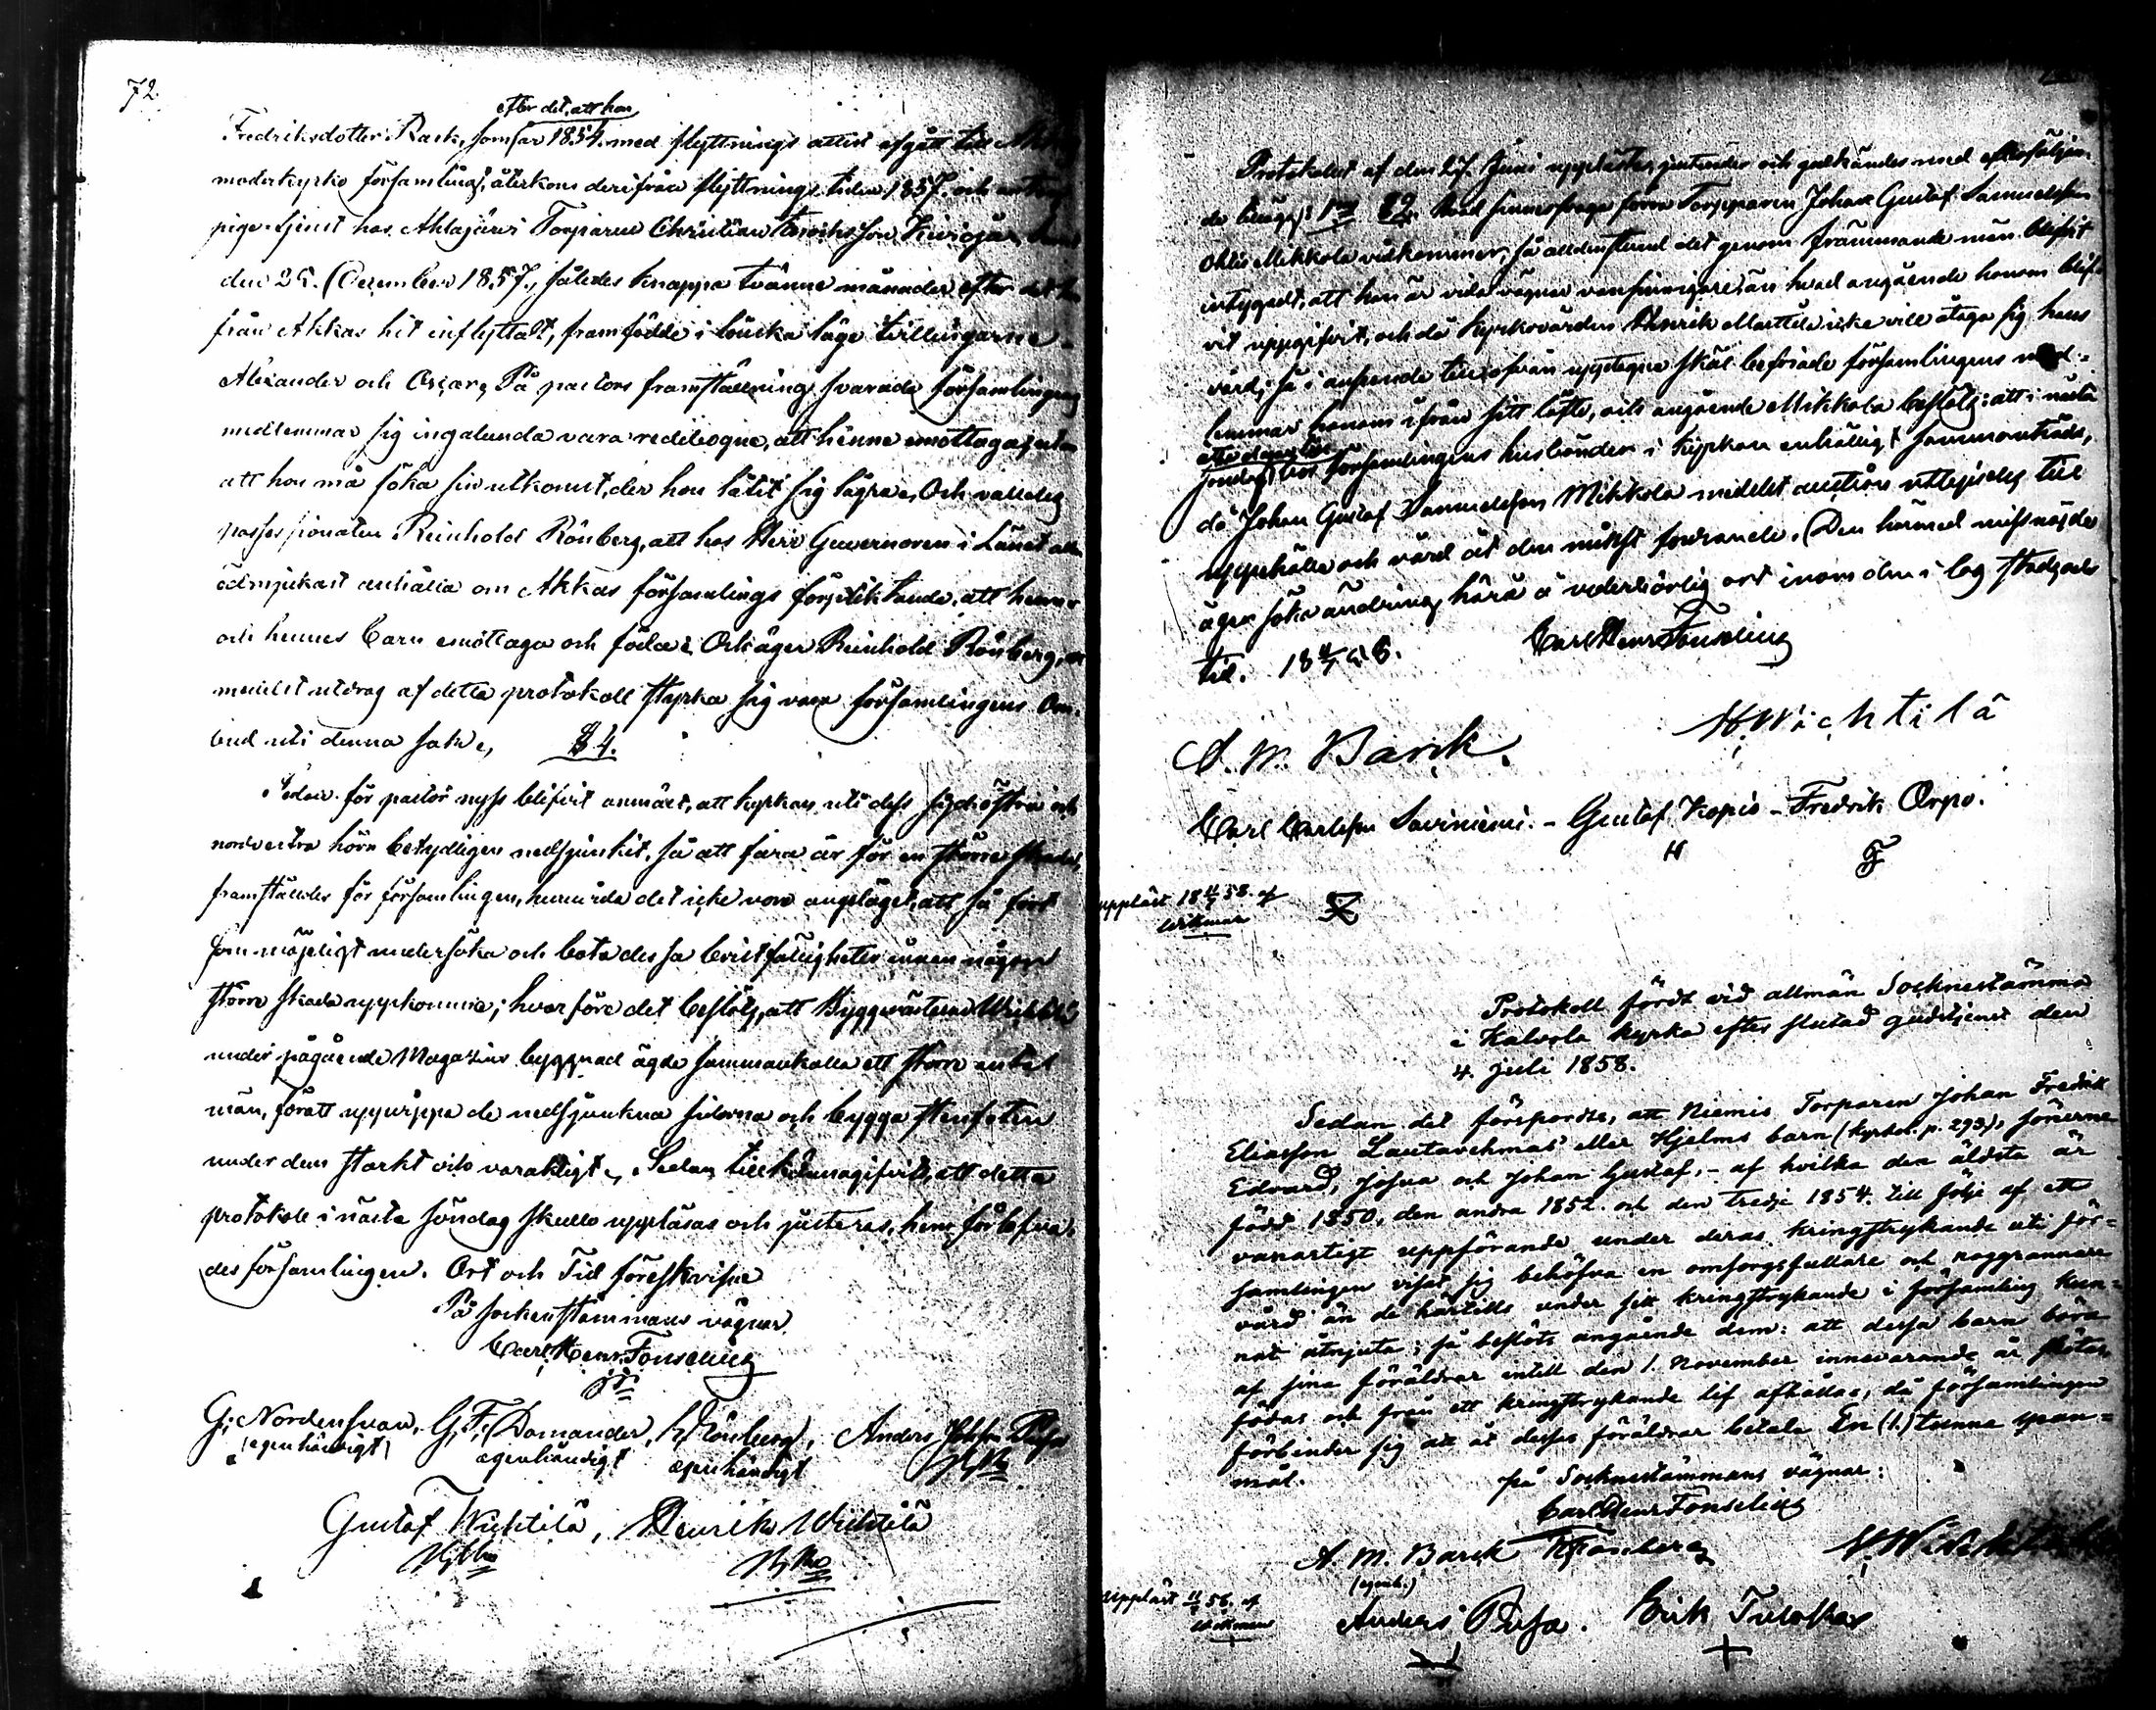 72.
efter det, att hon
Fredriksdotter Rask, som år 1854. med flyttnings attest afgått till
moderkyrko församling, återkom derifrån flyttnings tiden 1857. och
pige-tjenst hos Ahlajärvi Torparen Christian Henriksson
den 25. December 1857., således knappa tvänne månader efter det
från Akkas hit inflyttat, framfödde i lönska läge tvillingarne
Alexander och Oscar, På pastors framställning svarade församlingens
medlemmar sig ingalunda vara redebogne, att henne emottaga, utan
att hon må söka sin utkomst, der hon låtit sig lägra, Och valdes
possessionaten Reinhold Rönberg, att hos Herr Guvernoren i Länet
ödmjukast anhålla om Akkas församlings förpliktande, att henne
och hennes barn emottaga och föda; Och äger Reinhold Rönberg,
medelst utdrag af detta protokoll styrka sig vara församlingens Om-
bud uti denna sak, § 4.
Sedan för pastor nyss blifvit anmält, att kyrkans uti dess sydöstra och
nordvestra hörn betydligen nedsjunkit, så att fara är för en större skada,
framstäldes för församlingen, huruvida det icke vore angeläget, att så fort
som möjligt undersöka och bota dessa bristfälligheter innan någon
större skada uppkomme; hvarföre det beslöts, att Byggmästaren
under pågående Magasins byggnad ägde sammankalla ett större antal
män, för att uppvippa de nedsjunkna sidorna och bygga stenfoten
under dem starkt och varaktigt, Sedan tillkännagifvits, att detta
protokoll i nästa söndag skulle uppläsas och justeras, hem förlofva-
des församlingen. Ort och Tid föreskrifne
På sockenstämmans vägnar
Carl Henr. Fonselius
G. Nordensvan, G. F. Domander, R. Rönberg, Anders
(egenhändigt) egenhändigt egenhändigt
Gustaf Wichtilä, Henrik Wichtilä
Protokollet af den 27. Juni upplästes, justerades och godkändes med efterföljan-
de tillägg: 1mo § 2. Hvad sinnessvage förra Torpparen Johan Gustaf Samuelsson
Ohlis Mikkola vidkommer, så alldenstund det genom främmande män blifvit
intygadt, att han är vida vägnar vansinnigare, än hvad angående honom blif-
vit uppgifvit, och då Kyrkovärden Henrik Marttila icke vill åtaga sig hans
vård; så i anseende till ofvan uppteggne skäl befriade församlingens med-
lemmar honom ifrån sitt löfte, och angående Mikkola beslöts: att i nästa
söndag församlingens husbönder i kyrkan enhälligt sammanträda,
då Johan Gustaf Samuelsson Mikkola medelst auction utbjudes till
uppehälle och vård åt den minst fordrande. Den härmed missnöjde
äger söka ändring härå å vederbörlig ort inom den i lag stadgade
tid. 18 4/7 58. Carl Henr Fonselius
A. M. Barck. H. Wichtilä
Carl Carlsson Saviniemi. - Gustaf Kopis - Fredrik Orpo.
uppläst 18 11/7 58. af
Wikman
Protokoll fördt vid allmän Socknestämma
i Kalvola kyrka efter slutad gudstjenst den
4. Juli 1858.
Sedan det försports, att Niemis Torparen Johan Fredrik
Eliasson Lautavehmas eller Hjelms barn (kyrkob. p. 293), sönerne
Edvard, Josua och Johan Gustaf, - af hvilka den äldsta är
född 1850, den andra 1852. och den tredje 1854. till följe af ett
vanartigt uppförande under deras kringstrykande uti för-
samlingen visat sig behöfva en omsorgsfullare och noggrannare
vård än de härtills under sitt kringstrykande i församling kun-
nat åtnjuta; så beslöts angående dem: att dessa barn böra
af sina föräldrar intill den 1. November innevarande år skötas,
födas och från ett kringstrykande lif afhållas, då församlingen
förbinder sig att åt dessas föräldrar betala En (1.) tunna span-
mål.
på Socknestämmans vägnar:
Carl Henr Fonselius
A. M. Barck R Rönberg H. Wichtilä
(egenh.)
uppläst 11/7 58. af
Wikman
Anders Pusa. Erik Tulokas